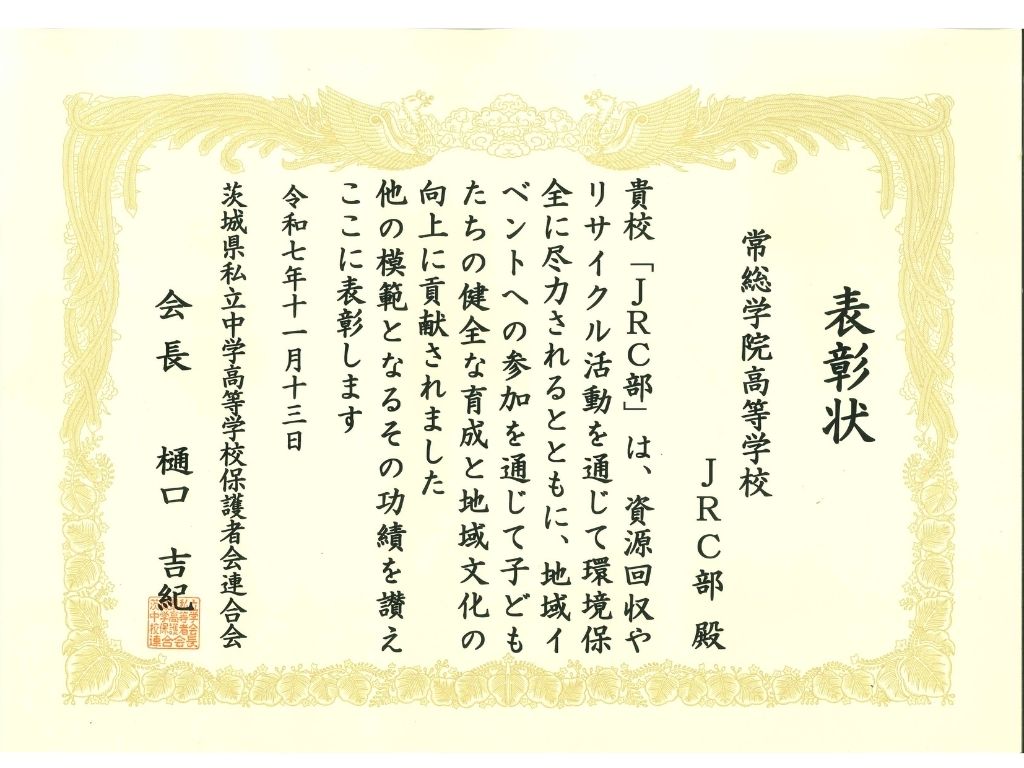 表彰状
常総学院高等学校
JRC部 殿
貴校「JRC部」は、資源回収や
リサイクル活動を通じて環境保
全に尽力されるとともに、地域イ
ベントへの参加を通じて子ども
たちの健全な育成と地域文化の
向上に貢献されました
他の模範となるその功績を讃え
ここに表彰します
令和七年十一月十三日
茨城県私立中学高等学校保護者会連合会
会長 樋口 吉紀